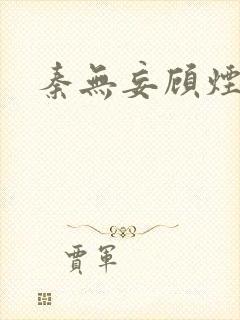 秦無妄顾煙
賈軍